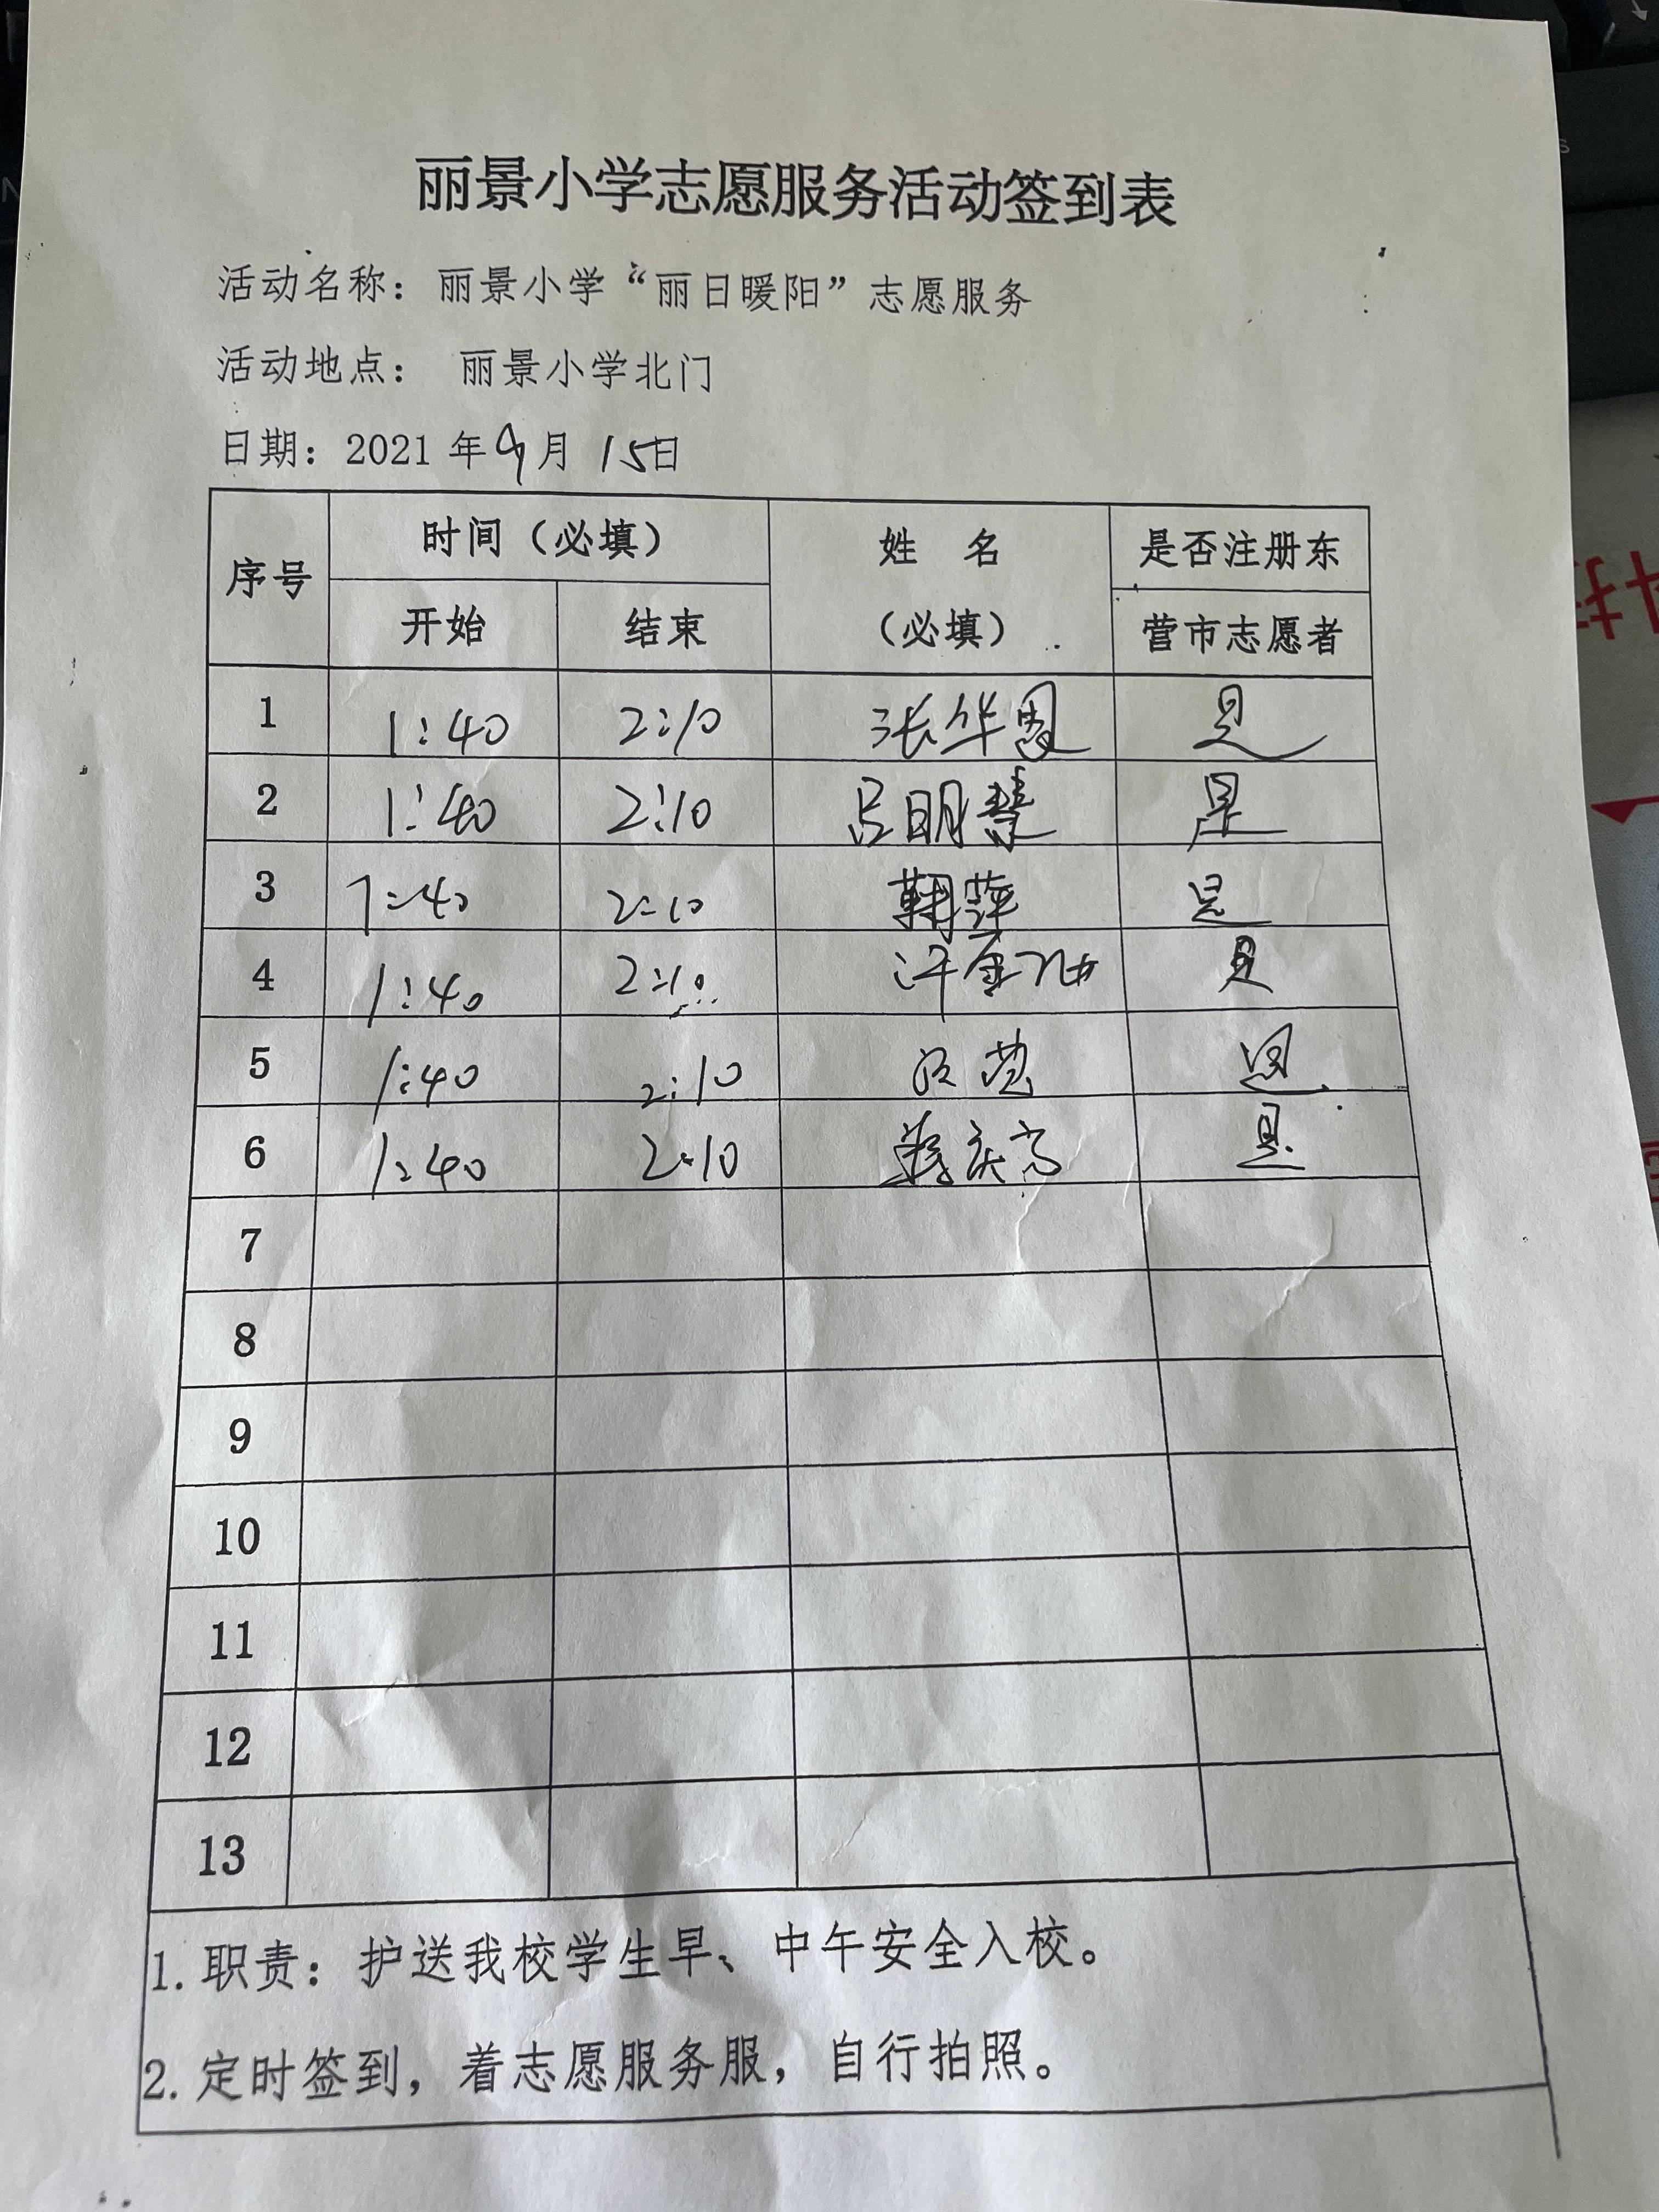 丽景小学志愿服务活动签到表
活动名称：丽景小学“丽日暖阳”志愿服务
活动地点： 丽景小学北门
日期：2021 年 9 月 15 日
序号 时间（必填） 姓 名 是否注册东
开始 结束 （必填） 营市志愿者
1 1:40 2:10 张华 是
2 1:40 2:10 吕明慧 是
3 1:40 2:10 韩萍 是
4 1:40 2:10 是
5 1:40 2:10 是
6 1:40 2:10 是
7
8
9
10
11
12
13
1. 职责：护送我校学生早、中午安全入校。
2. 定时签到，着志愿服务服，自行拍照。